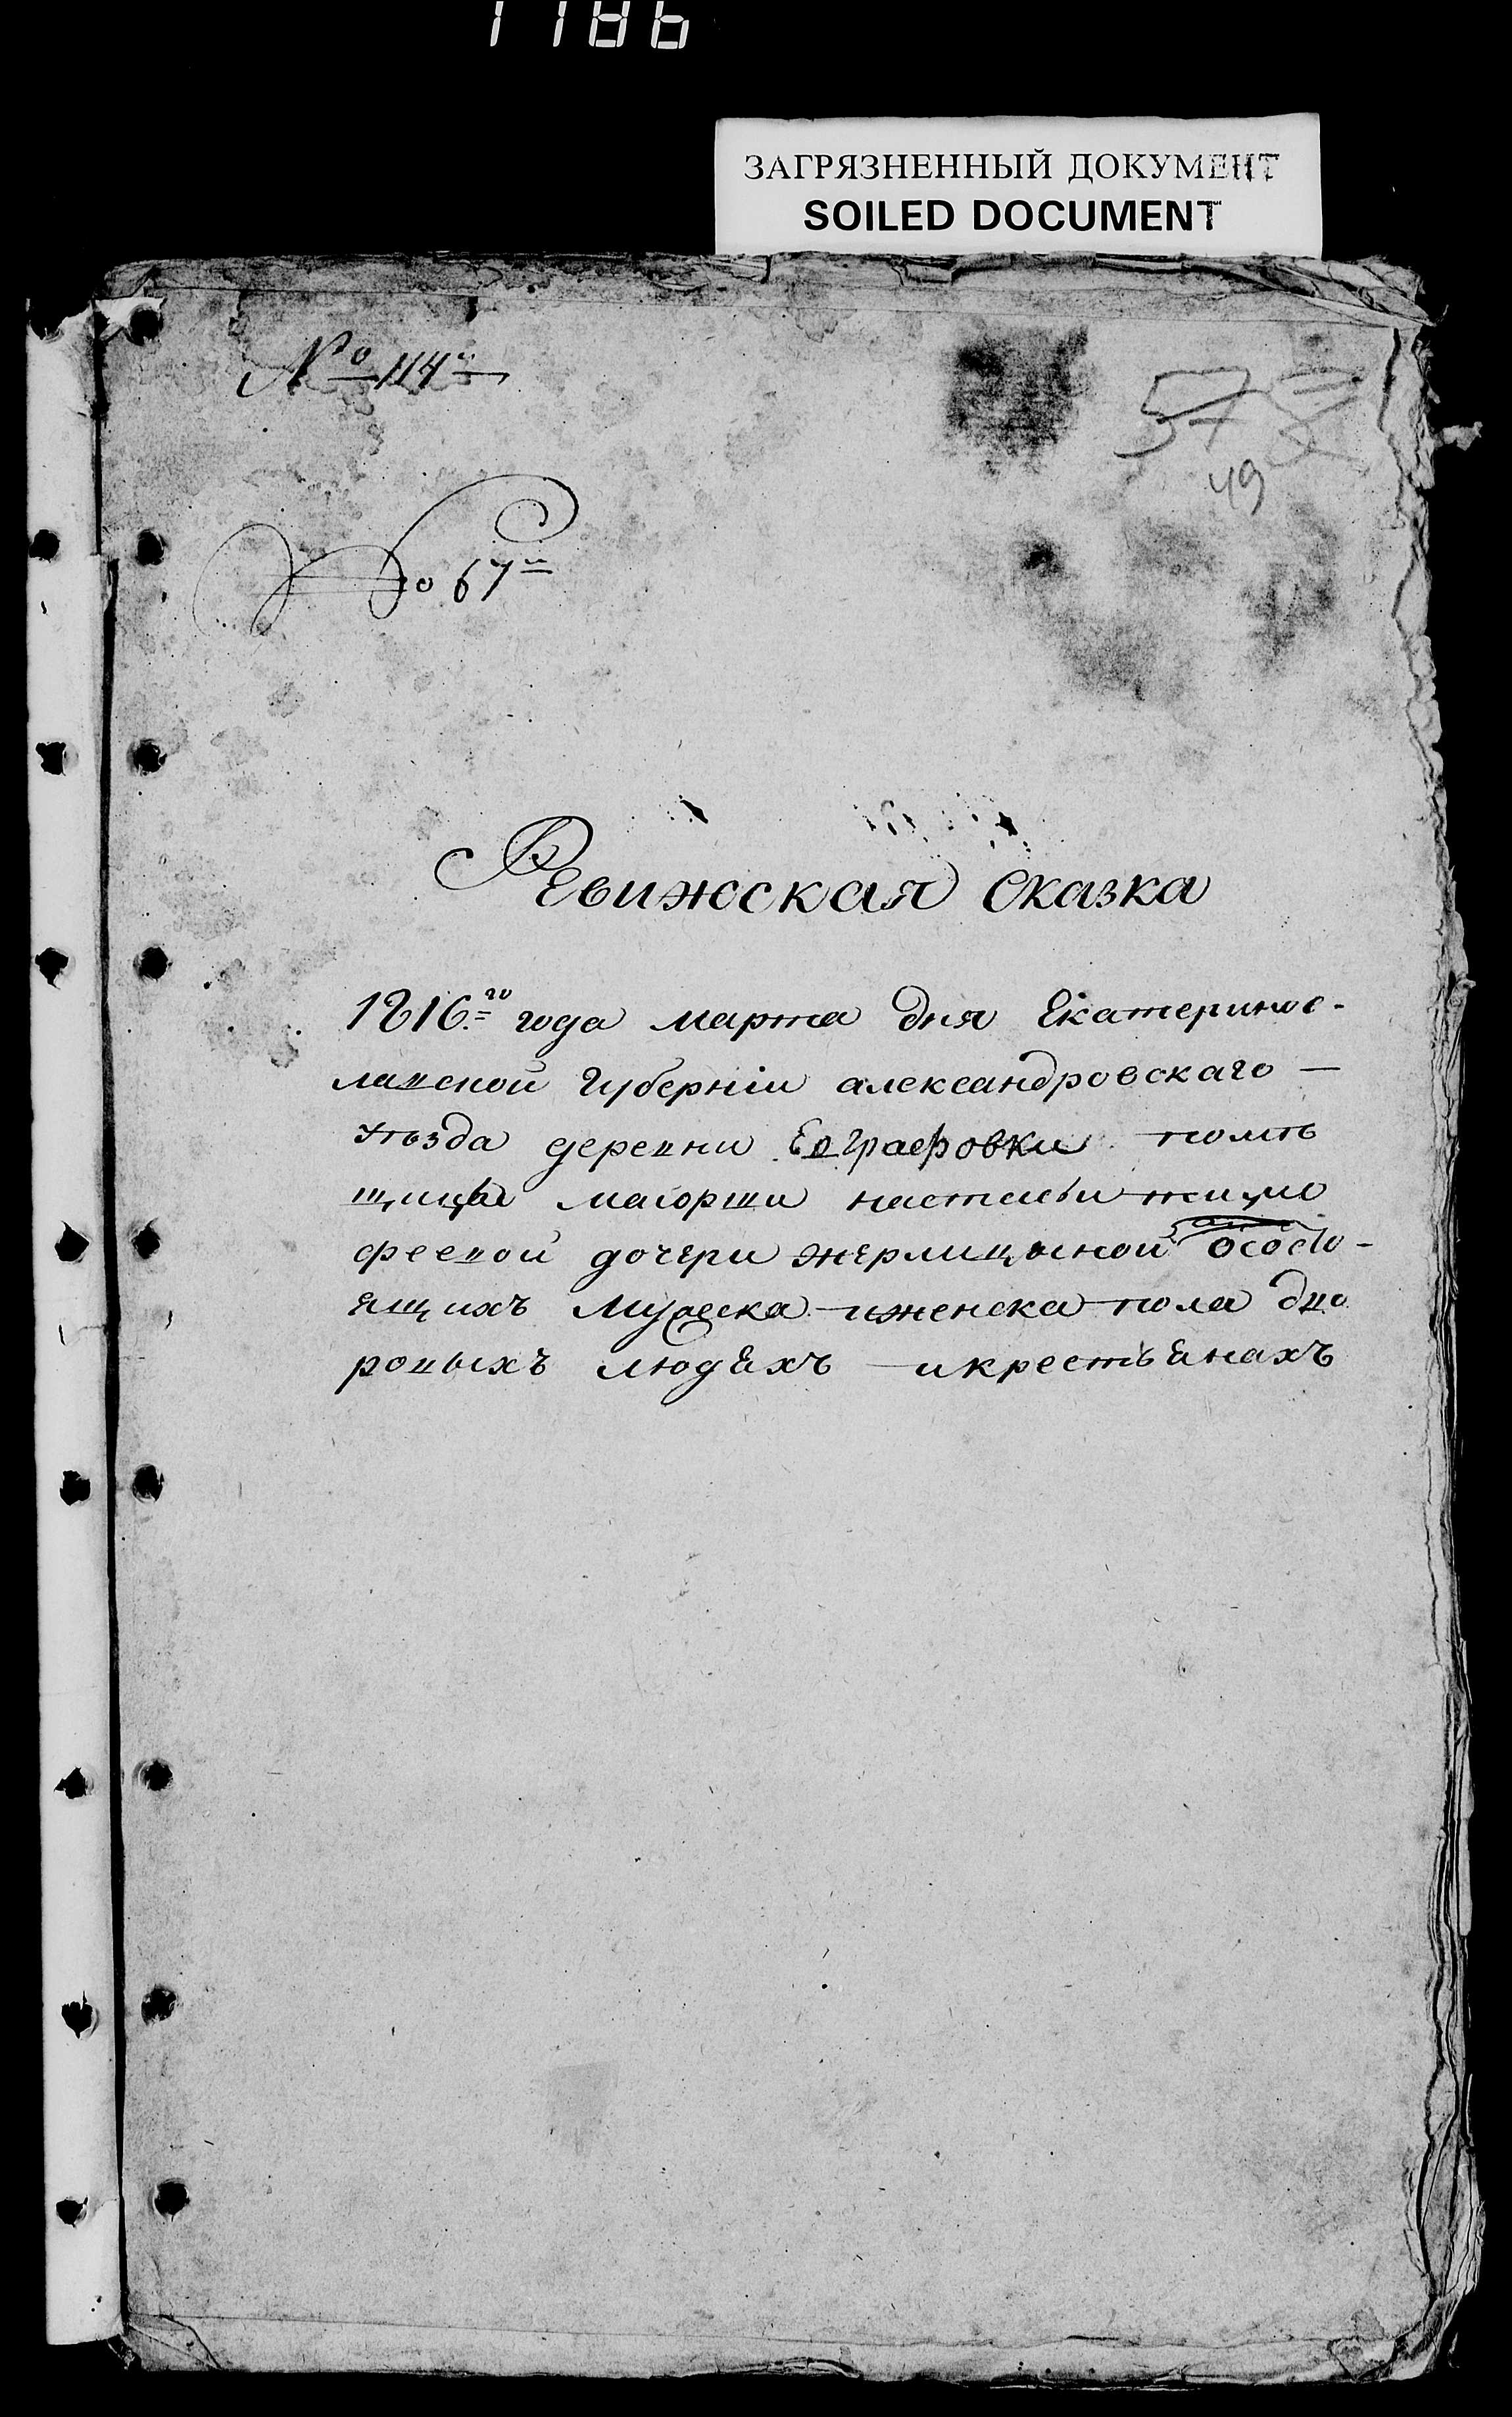 1186
ЗАГРЯЗНЕННЫЙ ДОКУМЕНТ
SOILED DOCUMENT
№ 114й
57
49
№ 67й
Ревижская Сказка
1816го года марта дня Екатеринос-
лавской Губернiи александровскаго —
уѣзда деревни Евграфовки помѣ
щицы маiорши настасьи тимо
феевой дочери жерлицыной ососто-
ящихъ мужеска иженска пола дво
ровыхъ людяхъ икрестьянахъ